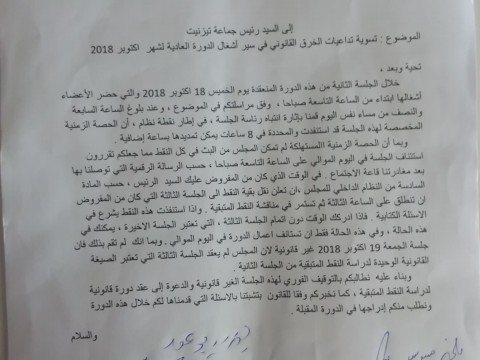 إلى السيد رئيس جماعة تيزنيت
الموضوع : تسوية تداعيات الخرق القانوني في سير أشغال الدورة العادية لشهر اكتوبر 2018
تحية وبعد ،
خلال الجلسة الثانية من هذه الدورة المنعقدة يوم الخميس 18 اكتوبر 2018 والتي حضر الأعضاء
أشغالها ابتداء من الساعة التاسعة صباحا ، وفق مراسلتكم في الموضوع ، وعند بلوغ الساعة السابعة
والنصف من مساء نفس اليوم قمنا بإثارة انتباه رئاسة الجلسة ، في إطار نقطة نظام ، أن الحصة الزمنية
المخصصة لهذه الجلسة قد استنفذت والمحددة في 8 ساعات يمكن تمديدها بساعة إضافية .
وبما أن الحصة الزمنية المستهلكة لم تمكن المجلس من البث في كل النقط مما جعلكم تقررون
استئناف الجلسة في اليوم الموالي على الساعة التاسعة صباحا ، حسب الرسالة الرقمية التي توصلنا بها
بعد مغادرتنا قاعة الاجتماع . في الوقت الذي كان من المفروض عليك السيد الرئيس ، حسب المادة
السادسة من النظام الداخلي للمجلس ،ان تعلن نقل بقية النقط الى الجلسة الثالثة التي كان من المفروض
ان تنطلق على الساعة 9 صباحا ثم تستمر في مناقشة النقط المتبقية . واذا استنفذت هذه النقط يشرع في
الاسئلة الكتابية . فاذا ادرككم الوقت دون اتمام الجلسة الثالثة ، التي تعتبر الجلسة الاخيرة ، يمكنك في
هذه الحالة ، وفي هذه الحالة فقط ان تستأنف أعمال الدورة في اليوم الموالي . وبما انك لم تقم بذلك فان
جلسة الجمعة 19 اكتوبر 2018 غير قانونية لان المجلس لم يعقد الجلسة الثالثة التي تعتبر الصيغة
القانونية الوحيدة لدراسة النقط المتبقية من الجلسة الثانية .
وبناء عليه نطالبكم بالتوقيف الفوري لهذه الجلسة الغير قانونية والدعوة إلى عقد دورة قانونية
لدراسة النقط المتبقية ، كما نخبركم وفقا للقانون بتشبتنا بالاسئلة التي قدمناها لكم خلال هذه الدورة
ونطلب منكم إدراجها في الدورة المقبلة .
والسلام